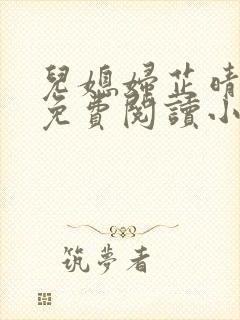 兒媳婦芷晴
免費閱讀小
筑夢者